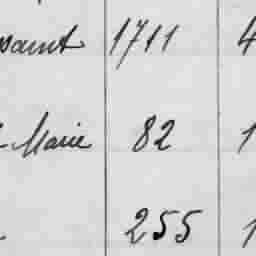 saint 1711 4
Marie 82 1
255 1